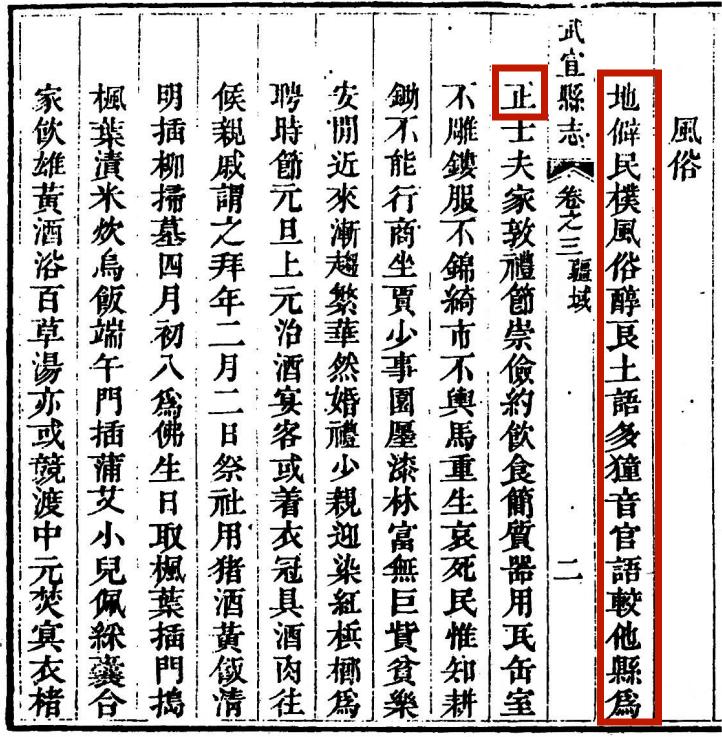 風俗
地僻民樸風俗醇良土語多獞音官語較他縣爲
武宣縣志 卷之三 疆域 二
正士夫家敦禮節崇儉約飲食簡質器用瓦缶室
不雕鏤服不錦綺市不輿馬重生哀死民惟知耕
鋤不能行商坐賈少事園廛漆林富無巨貲貧樂
安閒近來漸趨繁華然婚禮少親迎染紅檳榔爲
聘時節元旦上元治酒宴客或着衣冠具酒肉往
候親戚謂之拜年二月二日祭社用猪酒黃飯清
明插柳掃墓四月初八爲佛生日取楓葉插門搗
楓葉漬米炊烏飯端午門插蒲艾小兒佩綵囊合
家飲雄黃酒浴百草湯亦或競渡中元焚寘衣楮